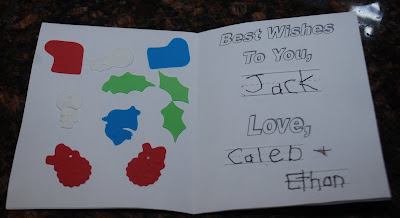 Best Wishes
To You,
Jack
Love,
Caleb +
Ethan